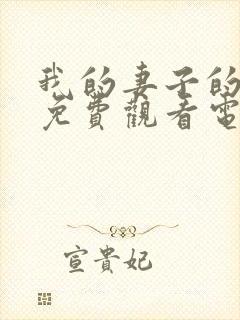 我的妻子的
免費觀看電
宣貴妃